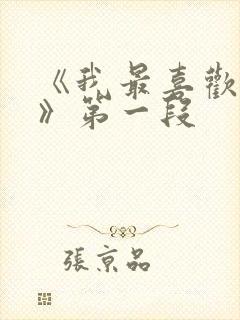 《我最喜歡
》第一段
張京品